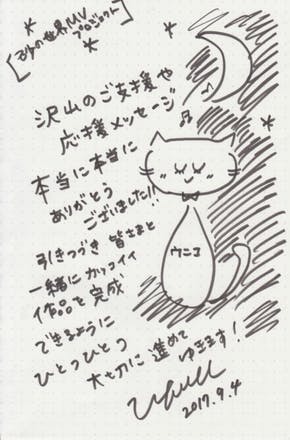 [砂の世界MV
プロジェクト]
沢山のご支援や
応援メッセージ
本当に本当に
ありがとう
ございました!!
引きつづき 皆さまと
一緒に カッコイイ
作品を完成
できるように
ひとつひとつ
大切に 進めて
ゆきます!
ウニコ
2017.9.4